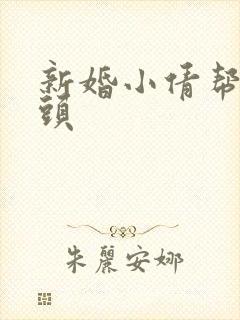 新婚小倩帮
頭
朱麗安娜